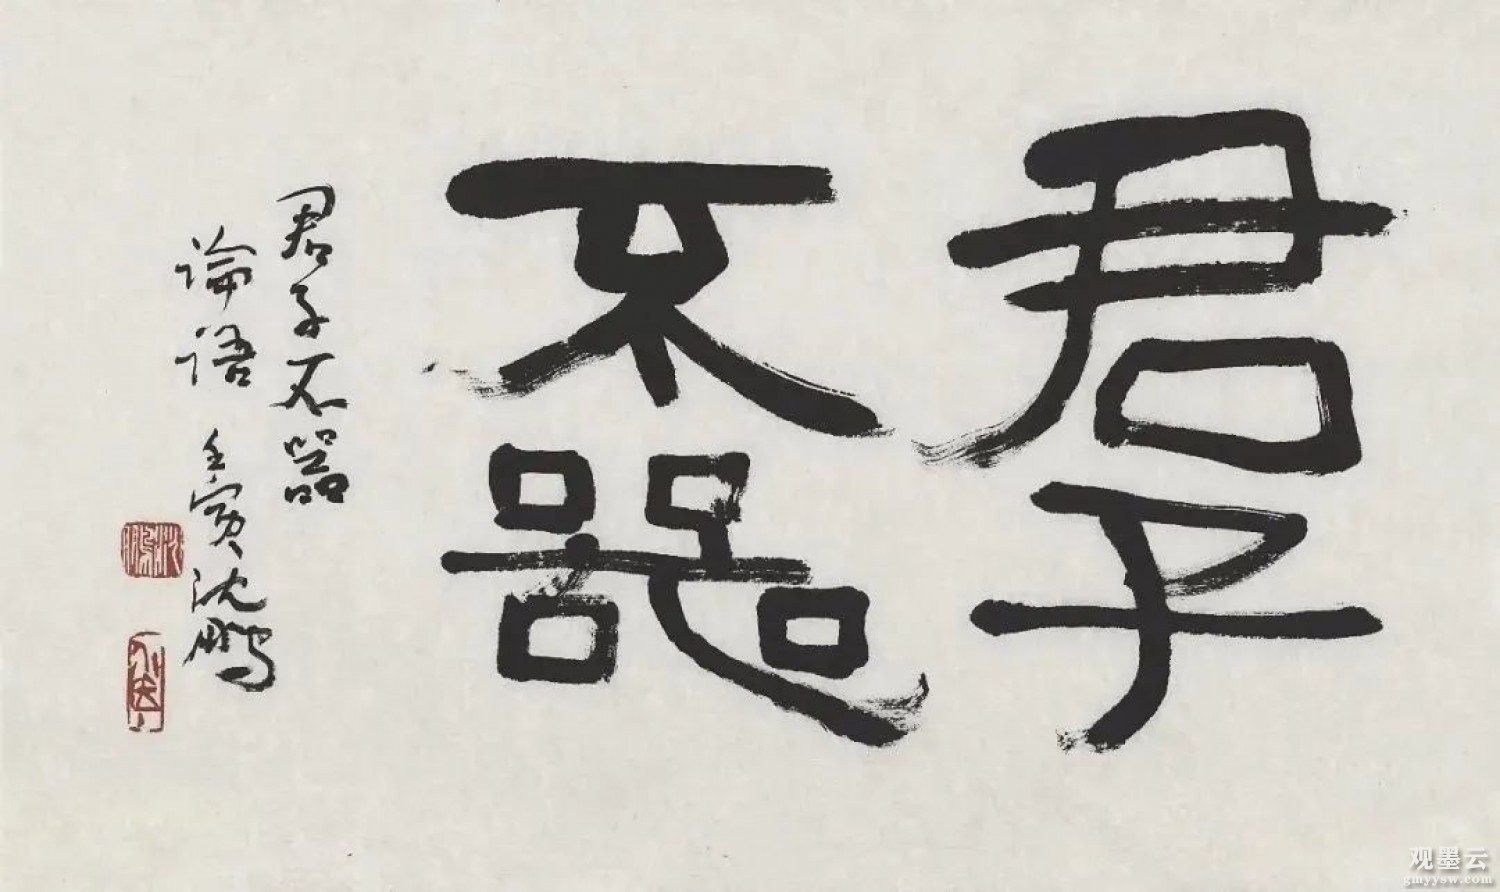 君子
不器
君子不器
論語 壬寅沈鵬
观墨云
gmyysw.com